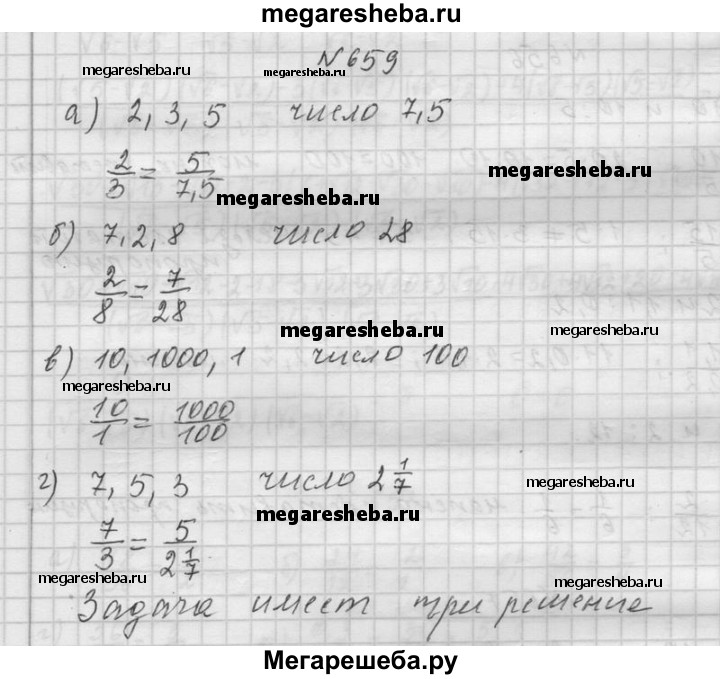 megaresheba.ru
N 659
megaresheba.ru megaresheba.ru megaresheba.ru
а) 2, 3, 5 число 7,5
2/3 = 5/7,5
megaresheba.ru megaresheba.ru
б) 7, 2, 8 число 28
2/8 = 7/28
megaresheba.ru megaresheba.ru
в) 10, 1000, 1 число 100
megaresheba.ru
10/1 = 1000/100
г) 7, 5, 3 число 2 1/7
megaresheba.ru
7/3 = 5/2 1/7
megaresheba.ru
megaresheba.ru megaresheba.ru
Задача имеет три решение
Мегарешеба.ру